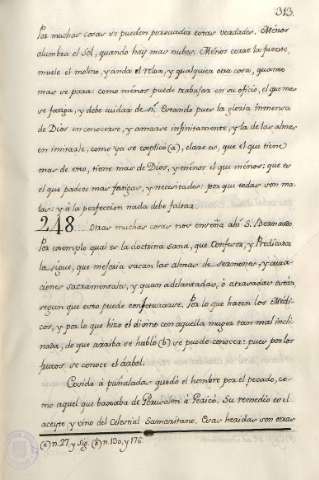 313.
Por muchas cosas se pueden persuadir estas verdades. Menos
alumbra el Sol, quando hay mas nubes. Menos corre la fuente,
muele el molino, y anda el relox, y qualquiera otra cosa, quanto
mas se para: como menos puede trabajar en su oficio, el que mas
se fatiga, y debe cuidar de sí. Estando pues la gloria inmensa
de Dios en conocerse, y amarse infinitamente, y la de las almas
en imitarle, como ya se explicó (a), claro es, que el que tiene
mas de esto, tiene mas de Dios, y menos el que menos: que es
el que padece mas fatigas, y necesidades: por que todas son ma-
las: y á la perfeccion nada debe faltar.
248 Otras muchas cosas nos enseña ahi S. Bernardo.
Por exemplo qual es la doctrina sana, que Confesor, y Predicador
la sigue, que mejoría sacan las almas de sermones y
ciones sacramentales, y quan adelantadas, o atrasadas están,
segun que esto puede conjeturarse. Por lo que hacen los Médi-
cos, y por lo que hizo el divino con aquella muger tan mal incli-
nada, de que arriba se habló (b) se puede conocer: pues por los
frutos se conoce el árbol.
Cosido á puñaladas quedó el hombre por el pecado, co-
mo aquel que baxaba de Jerusalen á Jericó. Su remedio es el
aceyte y vino del Celestial Samaritano. Esas heridas son otras
(a) n. 27. y sig. (b) n. 130, y 176.